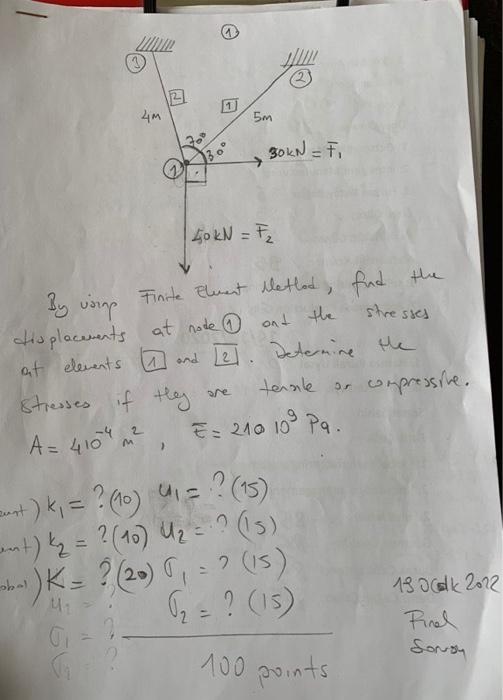 1
3
2
2
1
4m
5m
70°
30°
30kN = F₁
1
40kN = F₂
By using Finite Element Method, find the
displacements at node 1 and the stresses
at elements 1 and 2. Determine the
stresses if they are tensile or compressive.
A = 4 10⁻⁴ m², E = 210 10⁹ Pa.
k₁ = ? (10) u₁ = ? (15)
k₂ = ? (10) u₂ = ? (15)
K = ? (20) σ₁ = ? (15)
σ₂ = ? (15)
σ₁ = ?
100 points
13 Ocak 2022
Final